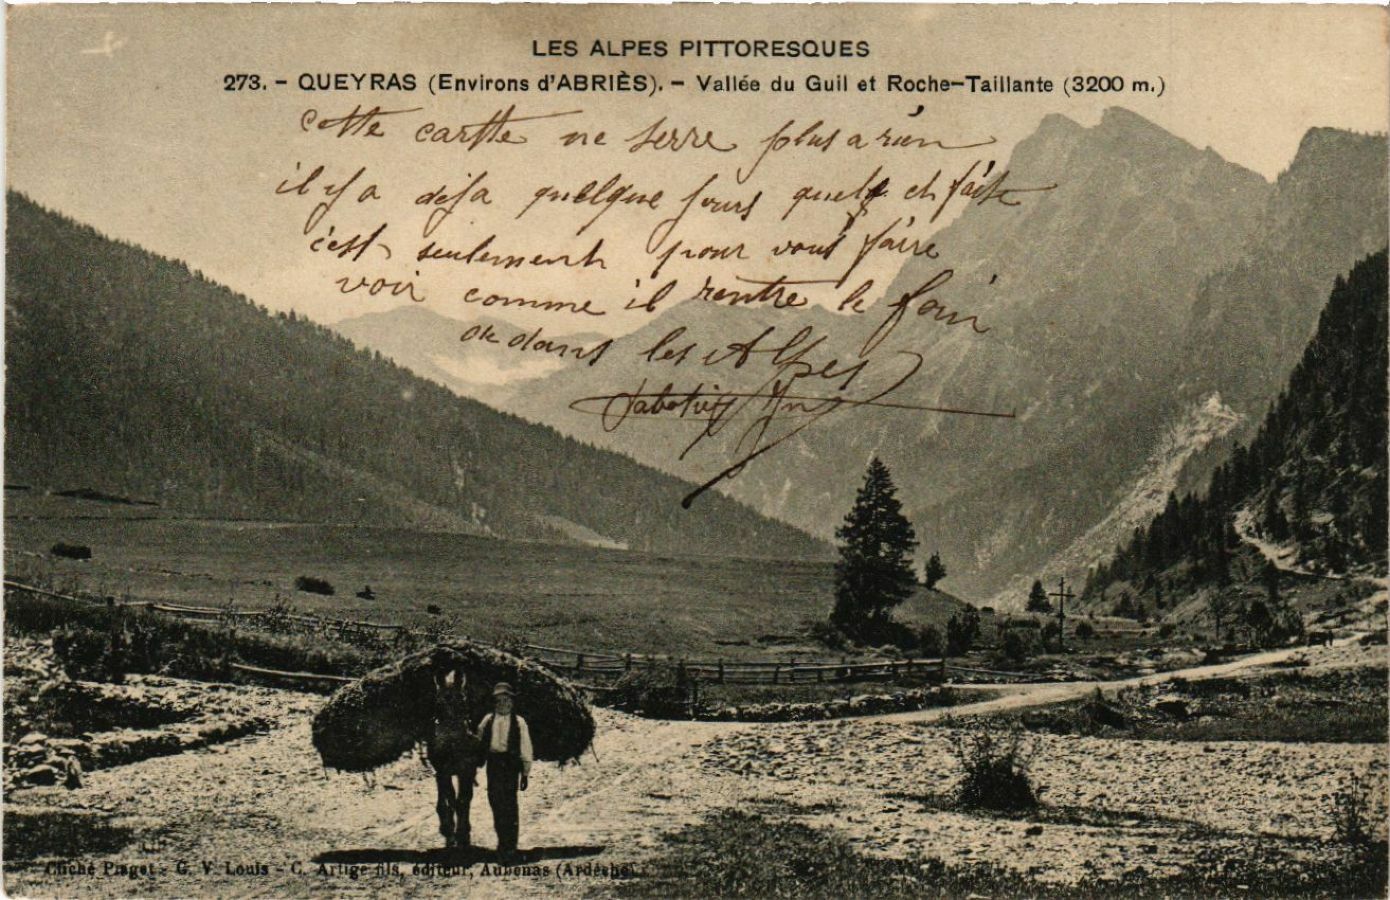 LES ALPES PITTORESQUES
273. - QUEYRAS (Environs d'ABRIÈS). - Vallée du Guil et Roche-Taillante (3200 m.)
cette cartte ne serre plus a rien
il y a deja quelque jours quel et faite
c'est seulement pour vous faire
voir comme il rentre le foin
dans les Alpes
Cliché Piaget - G. V. Louis - C. Artige fils, éditeur, Aubenas (Ardèche)